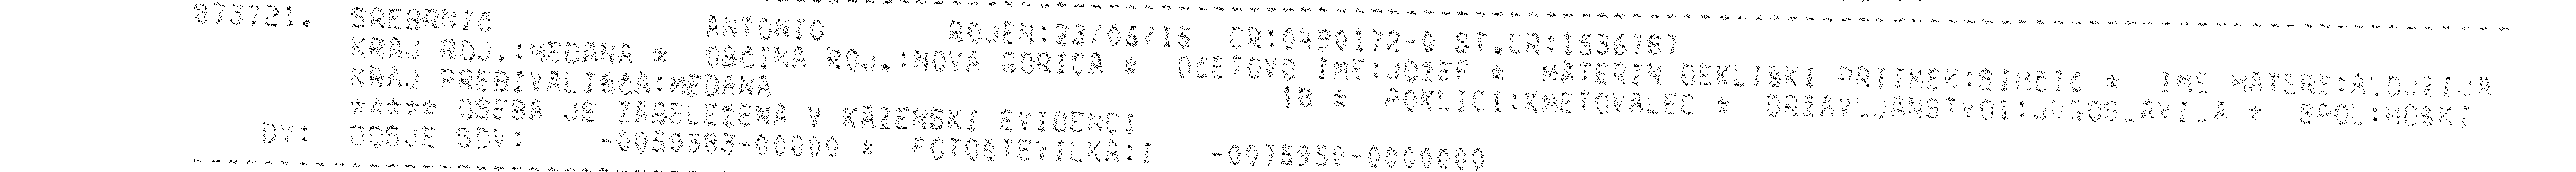 873721. SREBRNIČ ANTONIO ROJEN:23/06/15 CR:0490172-0 ST.CR:1536787
KRAJ ROJ.:MEDANA * OBČINA ROJ.:NOVA GORICA * OČETOVO IME:JOŽEF * MATERIN DEKLIŠKI PRIIMEK:SIMČIČ * IME MATERE:ALOJZIJA
KRAJ PREBIVALIŠČA:MEDANA 18 * POKLICI:KMETOVALEC * DRŽAVLJANSTVOI:JUGOSLAVIJA * SPOL:MOŠKI
***** OSEBA JE ZABELEŽENA V KAZENSKI EVIDENCI
DV: DOSJE SDV: -0050383-00000 * FOTOŠTEVILKA:I -0075950-0000000